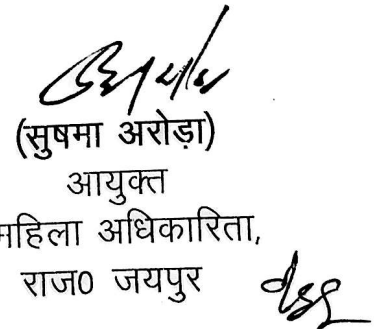 (सुषमा अरोड़ा)
आयुक्त
महिला अधिकारिता,
राज0 जयपुर